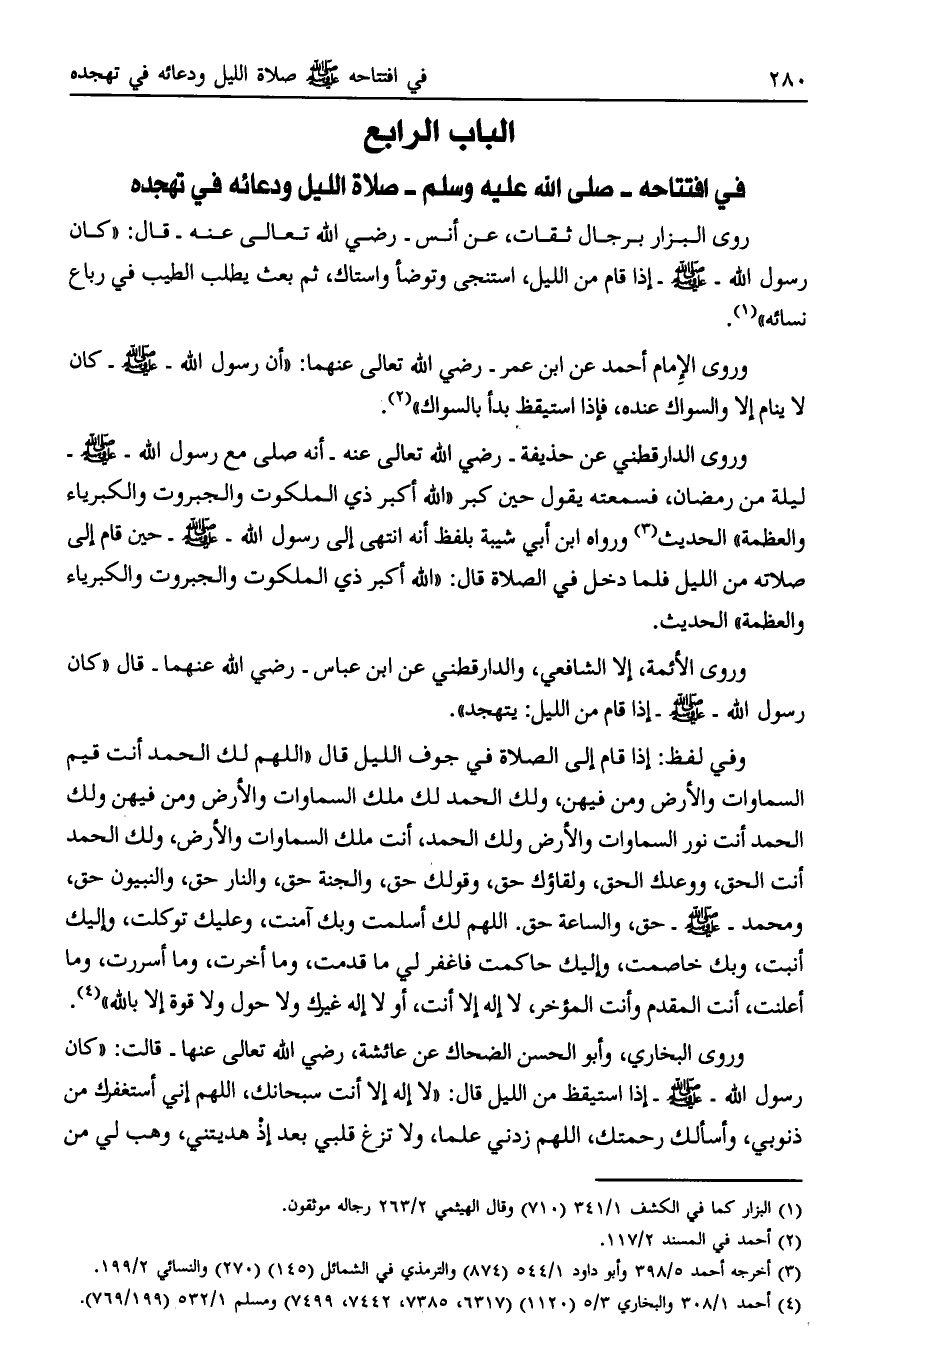 ٢٨٠ في افتتاحه ﷺ صلاة الليل ودعائه في تهجده
الباب الرابع
في افتتاحه ـ صلى الله عليه وسلم ـ صلاة الليل ودعائه في تهجده
روى البزار برجال ثقات، عن أنس ـ رضي الله تعالى عنه ـ قال: «كان
رسول الله ـ ﷺ ـ إذا قام من الليل، استنجى وتوضأ واستاك، ثم بعث يطلب الطيب في رباع
نسائه»(١).
وروى الإمام أحمد عن ابن عمر ـ رضي الله تعالى عنهما: «أن رسول الله ـ ﷺ ـ كان
لا ينام إلا والسواك عنده، فإذا استيقظ بدأ بالسواك»(٢).
وروى الدارقطني عن حذيفة ـ رضي الله تعالى عنه ـ أنه صلى مع رسول الله ـ ﷺ ـ
ليلة من رمضان، فسمعته يقول حين كبر «الله أكبر ذي الملكوت والجبروت والكبرياء
والعظمة» الحديث(٣) ورواه ابن أبي شيبة بلفظ أنه انتهى إلى رسول الله ـ ﷺ ـ حين قام إلى
صلاته من الليل فلما دخل في الصلاة قال: «الله أكبر ذي الملكوت والجبروت والكبرياء
والعظمة» الحديث.
وروى الأئمة، إلا الشافعي، والدارقطني عن ابن عباس ـ رضي الله عنهما ـ قال «كان
رسول الله ـ ﷺ ـ إذا قام من الليل: يتهجد».
وفي لفظ: إذا قام إلى الصلاة في جوف الليل قال «اللهم لك الحمد أنت قيم
السماوات والأرض ومن فيهن، ولك الحمد لك ملك السماوات والأرض ومن فيهن ولك
الحمد أنت نور السماوات والأرض ولك الحمد، أنت ملك السماوات والأرض، ولك الحمد
أنت الحق، ووعدك الحق، ولقاؤك حق، وقولك حق، والجنة حق، والنار حق، والنبيون حق،
ومحمد ـ ﷺ ـ حق، والساعة حق. اللهم لك أسلمت وبك آمنت، وعليك توكلت، وإليك
أنبت، وبك خاصمت، وإليك حاكمت فاغفر لي ما قدمت، وما أخرت، وما أسررت، وما
أعلنت، أنت المقدم وأنت المؤخر، لا إله إلا أنت، أو لا إله غيرك ولا حول ولا قوة إلا بالله»(٤).
وروى البخاري، وأبو الحسن الضحاك عن عائشة، رضي الله تعالى عنها ـ قالت: «كان
رسول الله ـ ﷺ ـ إذا استيقظ من الليل قال: «لا إله إلا أنت سبحانك، اللهم إني أستغفرك من
ذنوبي، وأسألك رحمتك، اللهم زدني علما، ولا تزغ قلبي بعد إذْ هديتني، وهب لي من
(١) البزار كما في الكشف ٣٤١/١ (٧١٠) وقال الهيثمي ٢٦٣/٢ رجاله موثقون.
(٢) أحمد في المسند ١١٧/٢.
(٣) أخرجه أحمد ٣٩٨/٥ وأبو داود ٥٤٤/١ (٨٧٤) والترمذي في الشمائل (١٤٥) (٢٧٠) والنسائي ١٩٩/٢.
(٤) أحمد ٣٠٨/١ والبخاري ٥/٣ (١١٢٠) (٦٣١٧، ٧٣٨٥، ٧٤٤٢، ٧٤٩٩) ومسلم ٥٣٢/١ (٧٦٩/١٩٩).